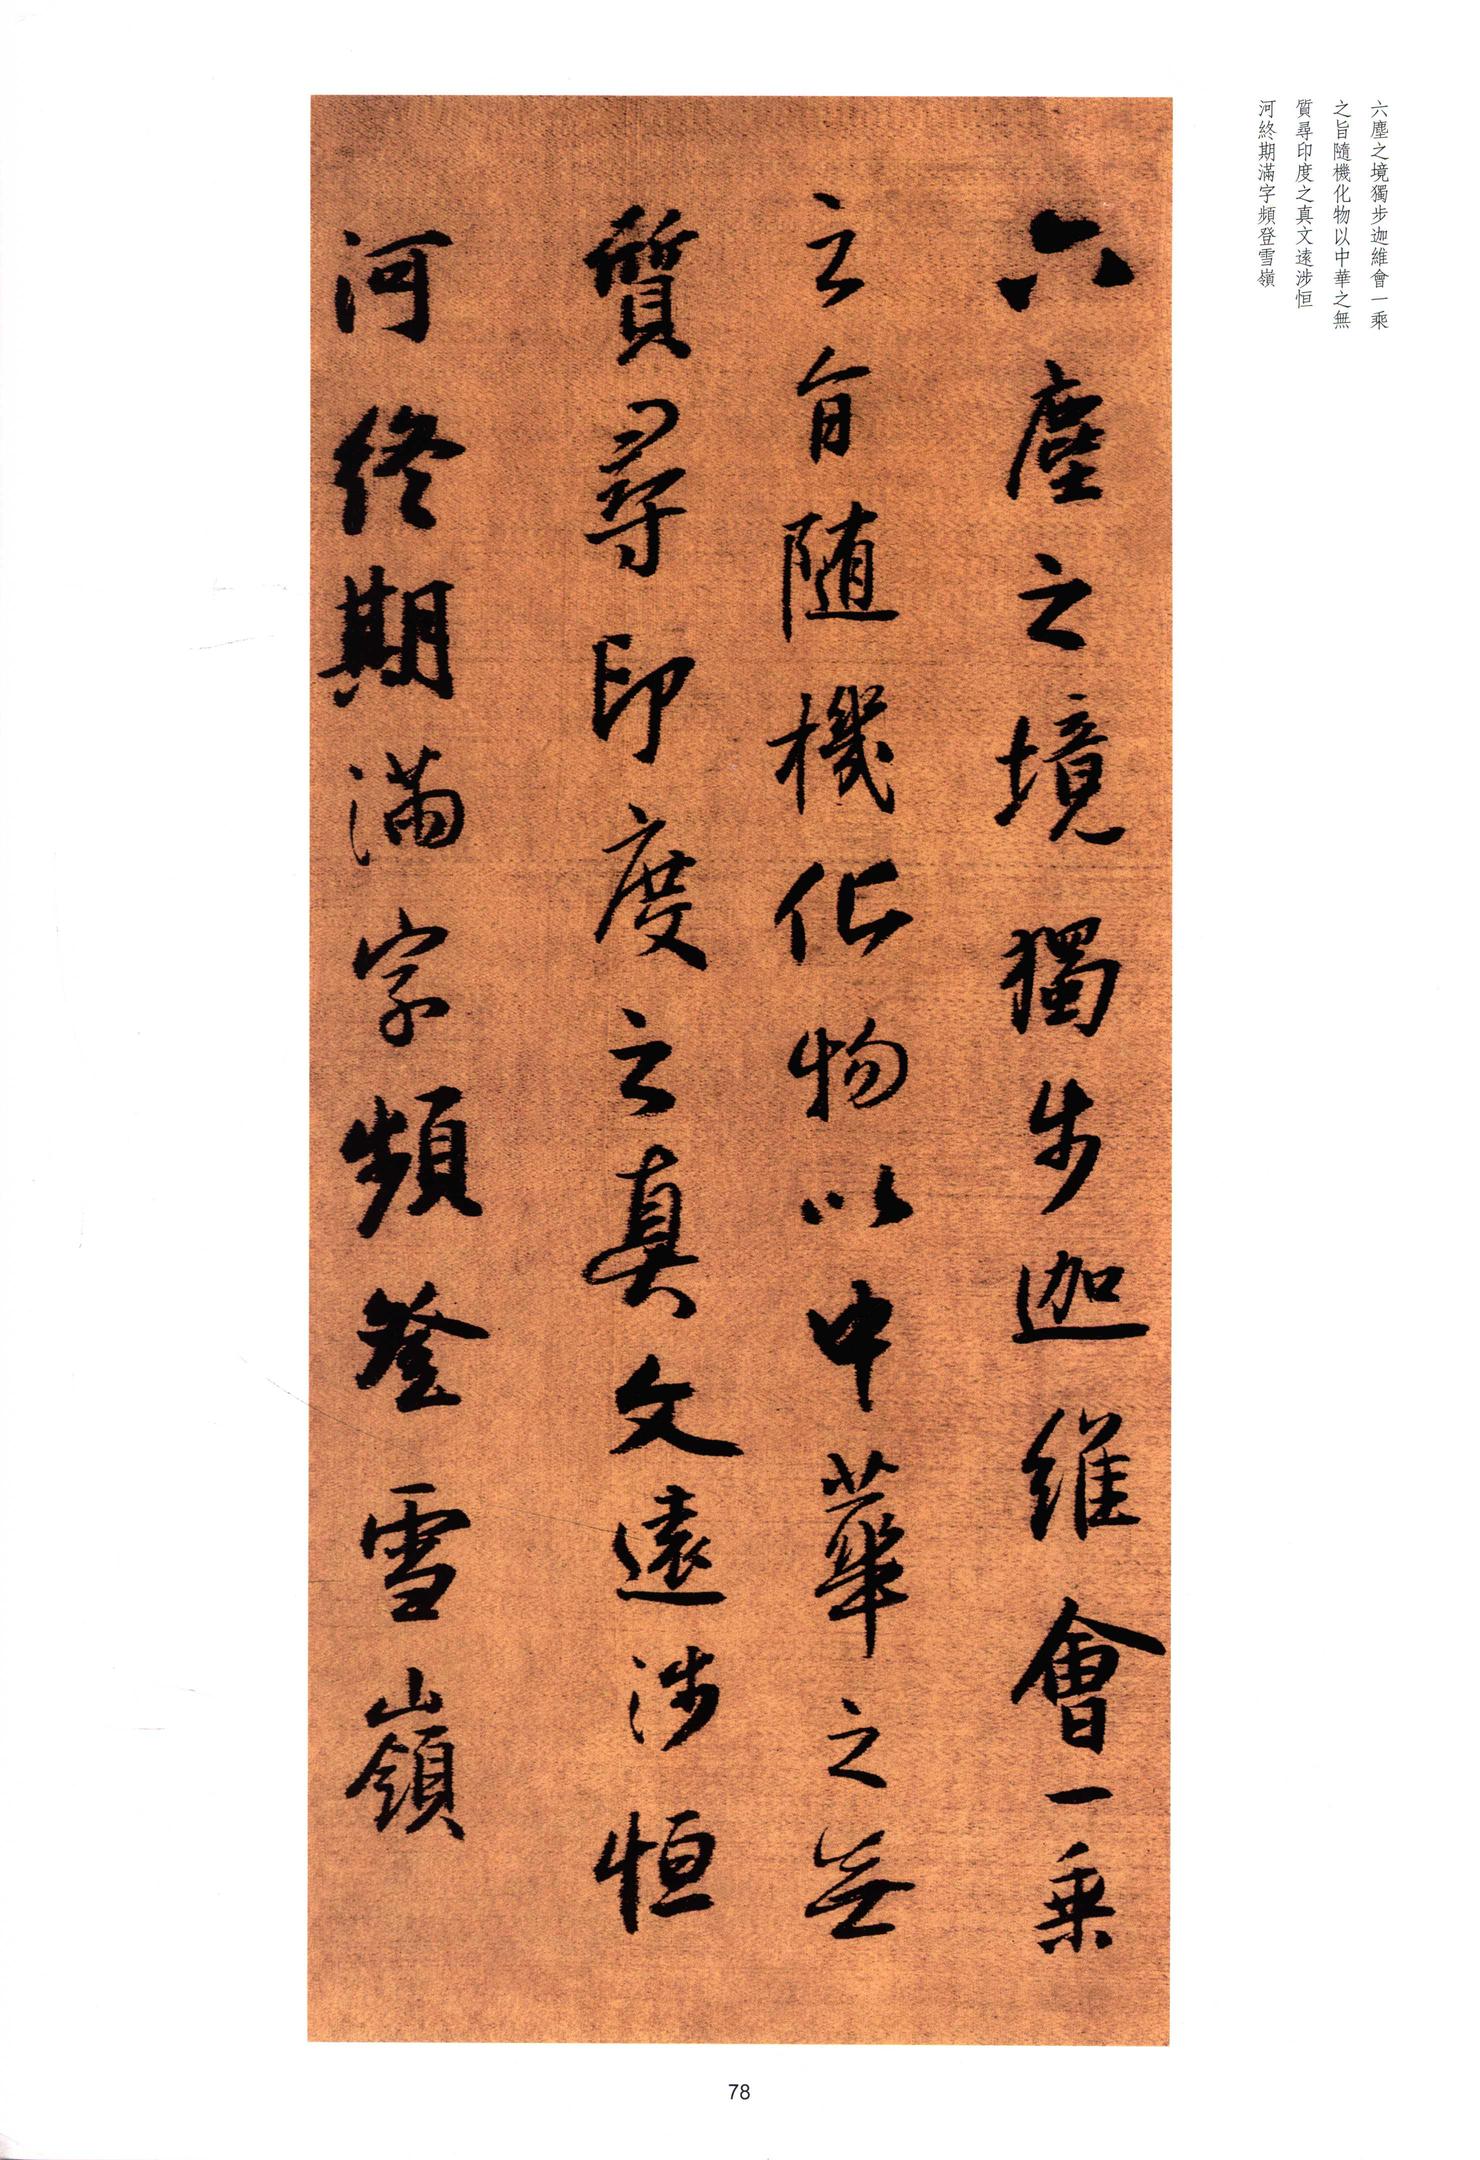 六塵之境獨步迦維會一乘
之旨隨機化物以中華之無
質尋印度之真文遠涉恒
河終期滿字頻登雪嶺
六塵之境獨步迦維會一乘
之旨隨機化物以中華之無
質尋印度之真文遠涉恒
河終期滿字頻登雪嶺
78